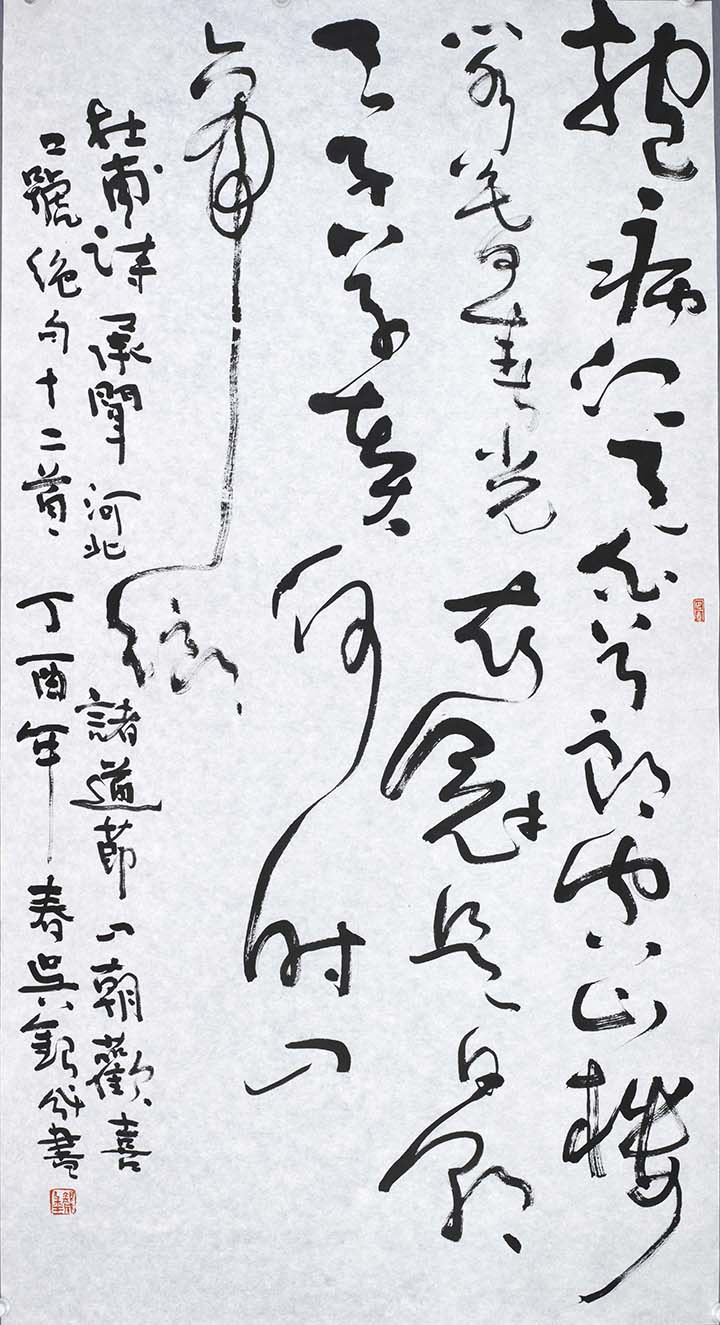 抱病江天白首郎空山樓
閣暮春光衣冠是日朝
天子草奏何時入
帝鄉
杜甫詩承聞河北諸道節入朝歡喜
口號絕句十二首丁酉年春吳書